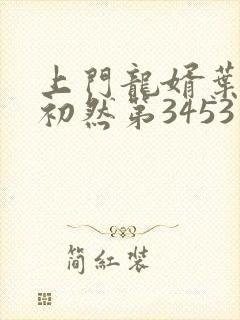 上門龍婿葉
初然第3453
簡紅裝